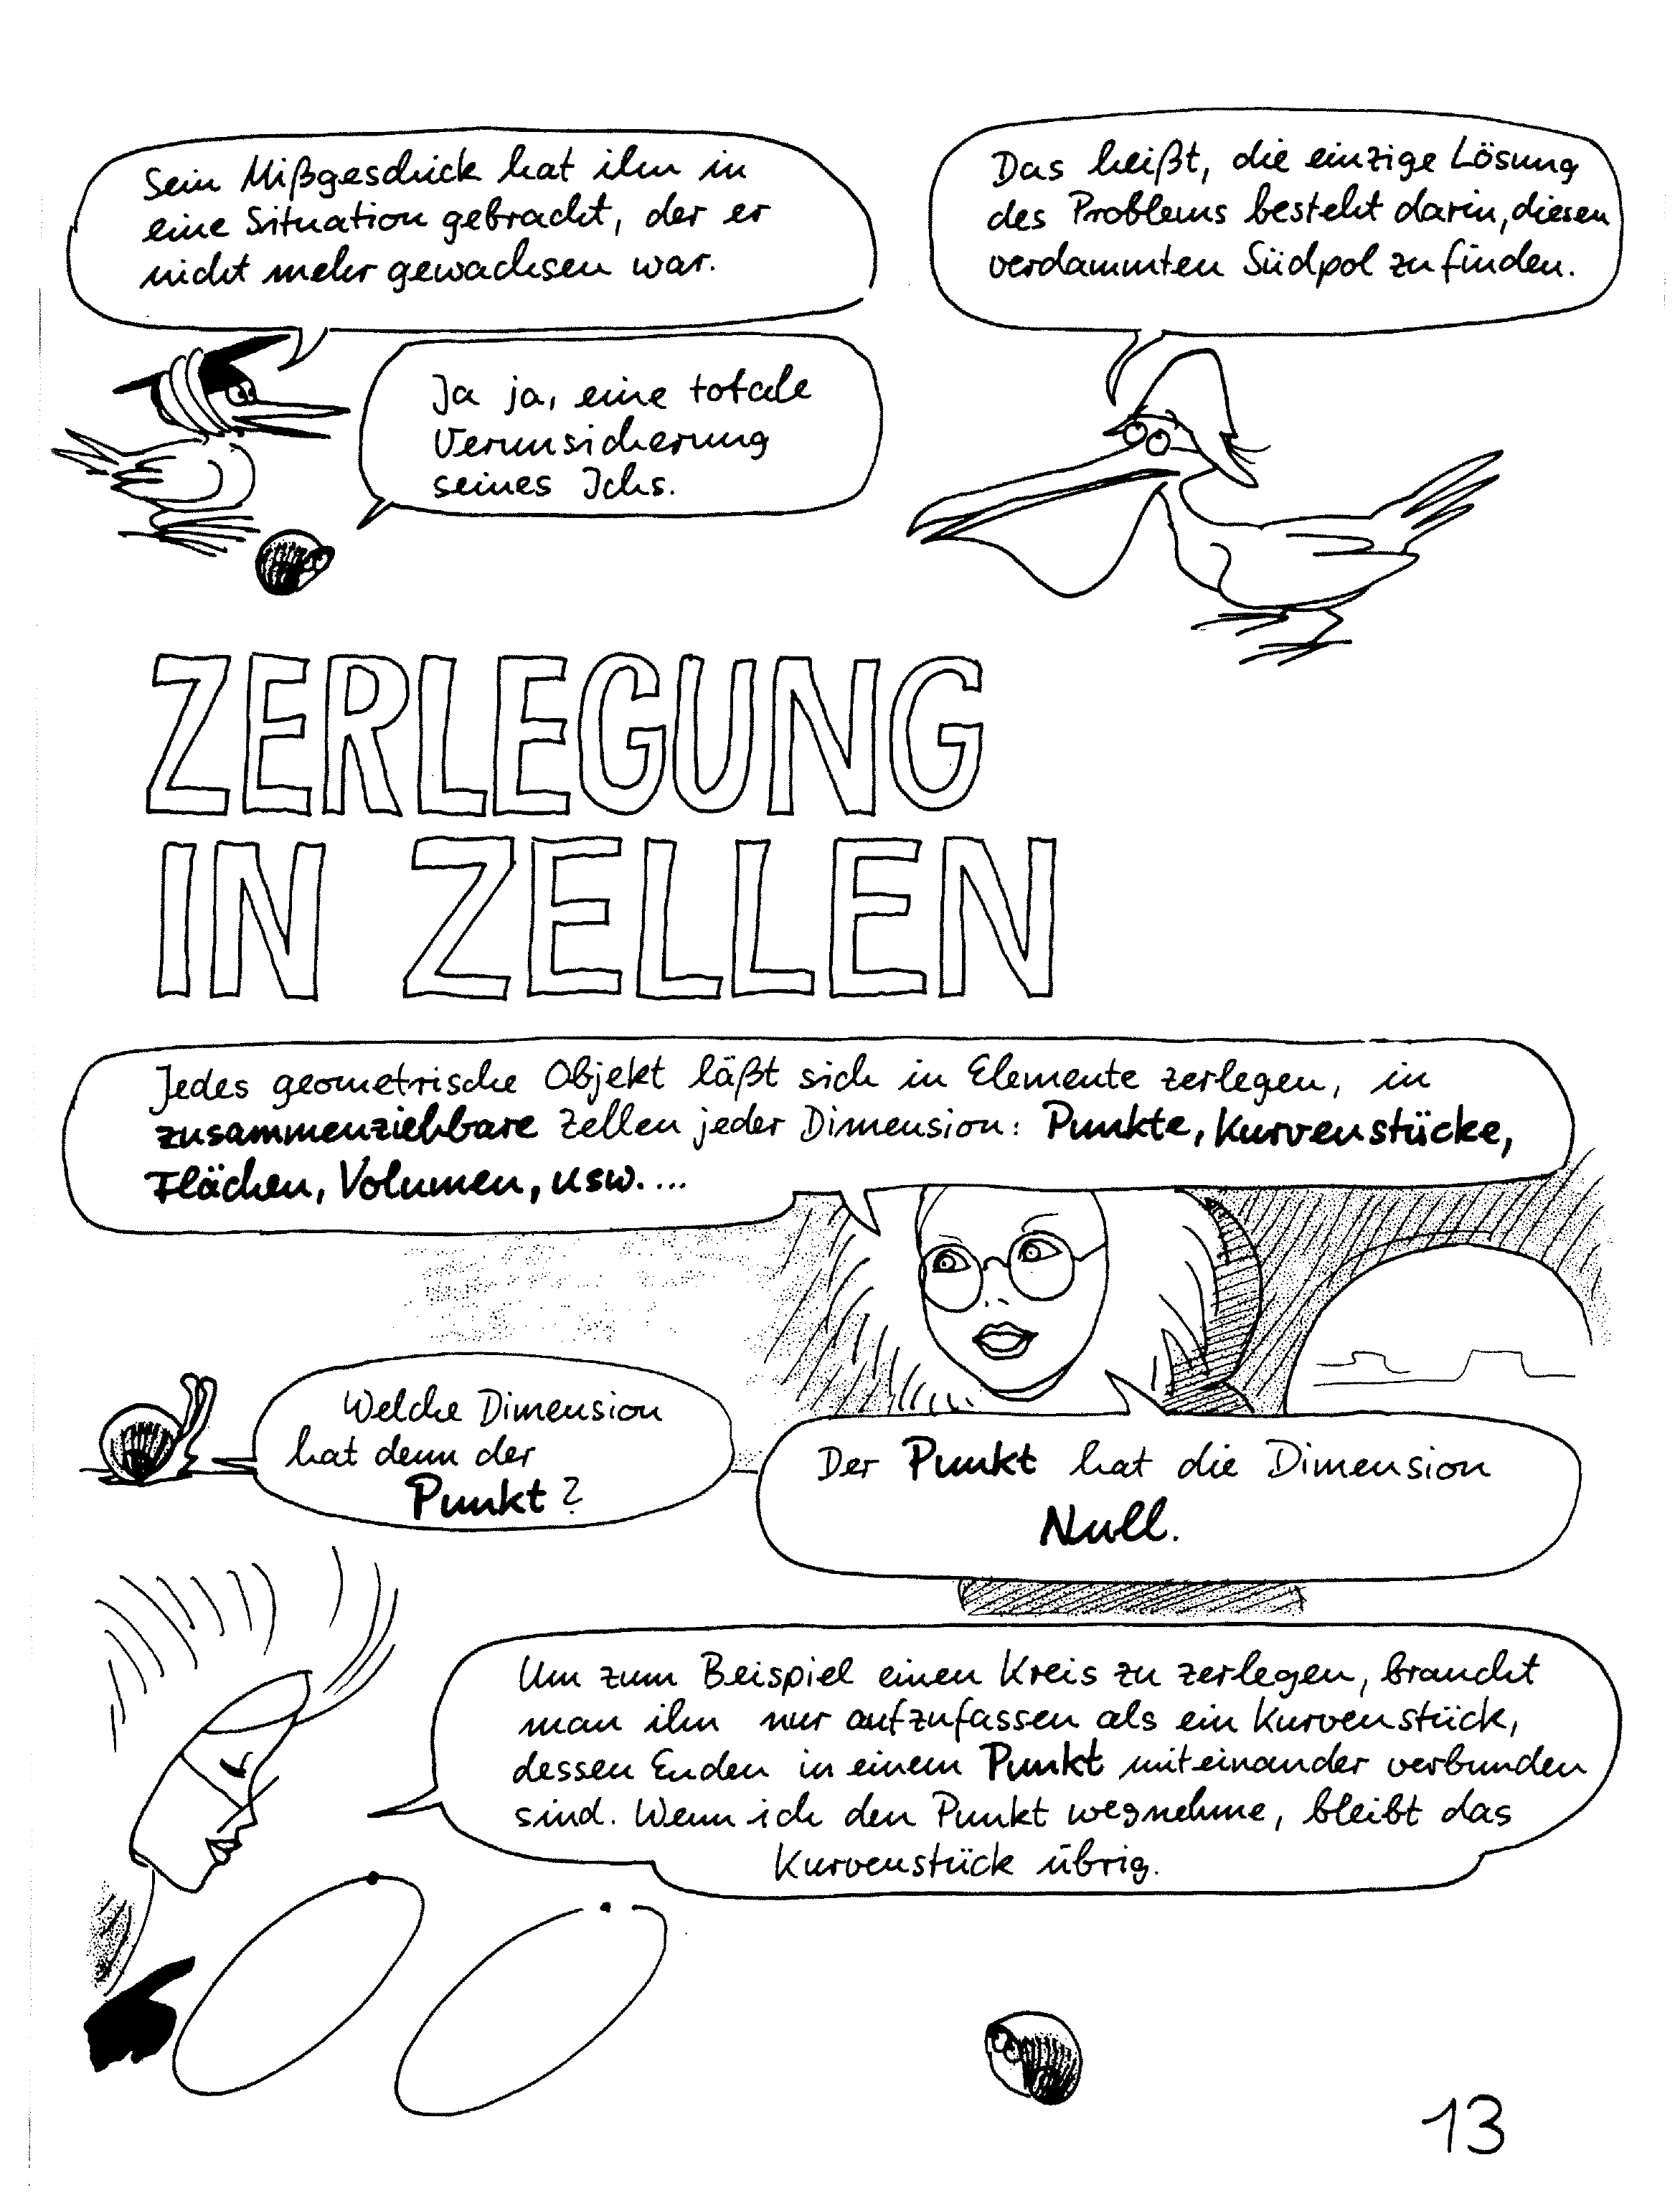 Sein Mißgeschick hat ihn in
eine Situation gebracht, der er
nicht mehr gewachsen war.
Das heißt, die einzige Lösung
des Problems besteht darin, diesen
verdammten Südpol zu finden.
Ja ja, eine totale
Verunsicherung
seines Ichs.
ZERLEGUNG
IN ZELLEN
Jedes geometrische Objekt läßt sich in Elemente zerlegen, in
zusammenziehbare Zellen jeder Dimension: Punkte, Kurvenstücke,
Flächen, Volumen, usw. ...
Welche Dimension
hat denn der
Punkt?
Der Punkt hat die Dimension
Null.
Um zum Beispiel einen Kreis zu zerlegen, braucht
man ihn nur aufzufassen als ein Kurvenstück,
dessen Enden in einem Punkt miteinander verbunden
sind. Wenn ich den Punkt wegnehme, bleibt das
Kurvenstück übrig.
13